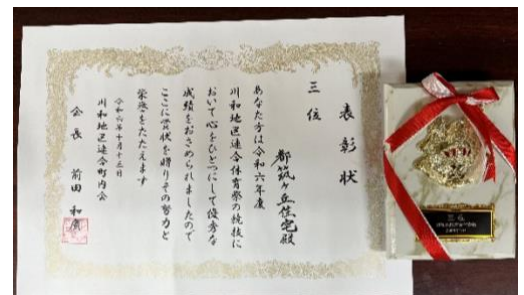 表彰状
三位
都筑ヶ丘住宅殿
あなた方は令和六年度
川和地区連合体育祭の競技に
おいて心をひとつにして優秀な
成績をおさめられましたので
ここに賞状を贈りその努力と
栄誉をたたえます
令和六年十月十三日
川和地区連合町内会
会長 前田 和
三位